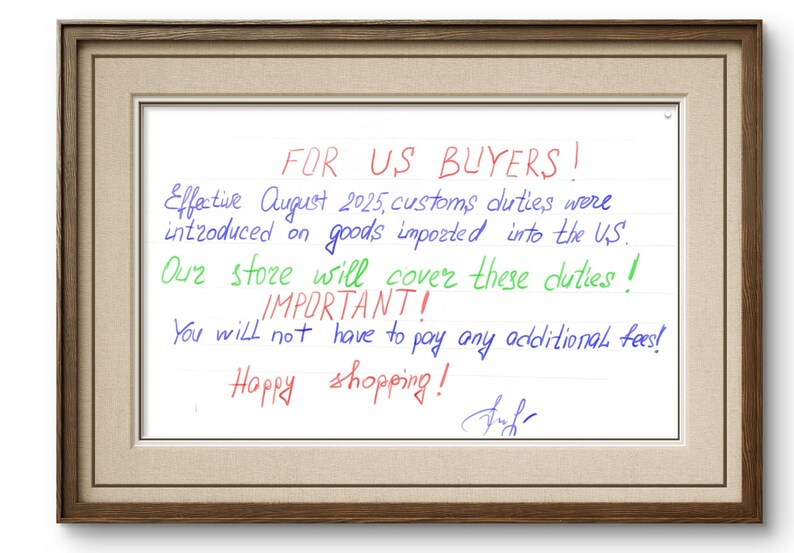 FOR US BUYERS!
Effective August 2025, customs duties were
introduced on goods imported into the US.
Our store will cover these duties!
IMPORTANT!
You will not have to pay any additional fees!
Happy shopping!